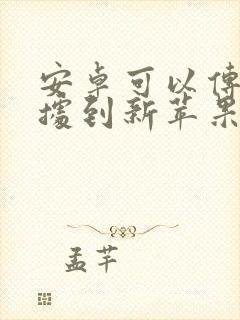 安卓可以傳
據到新苹果
孟芊